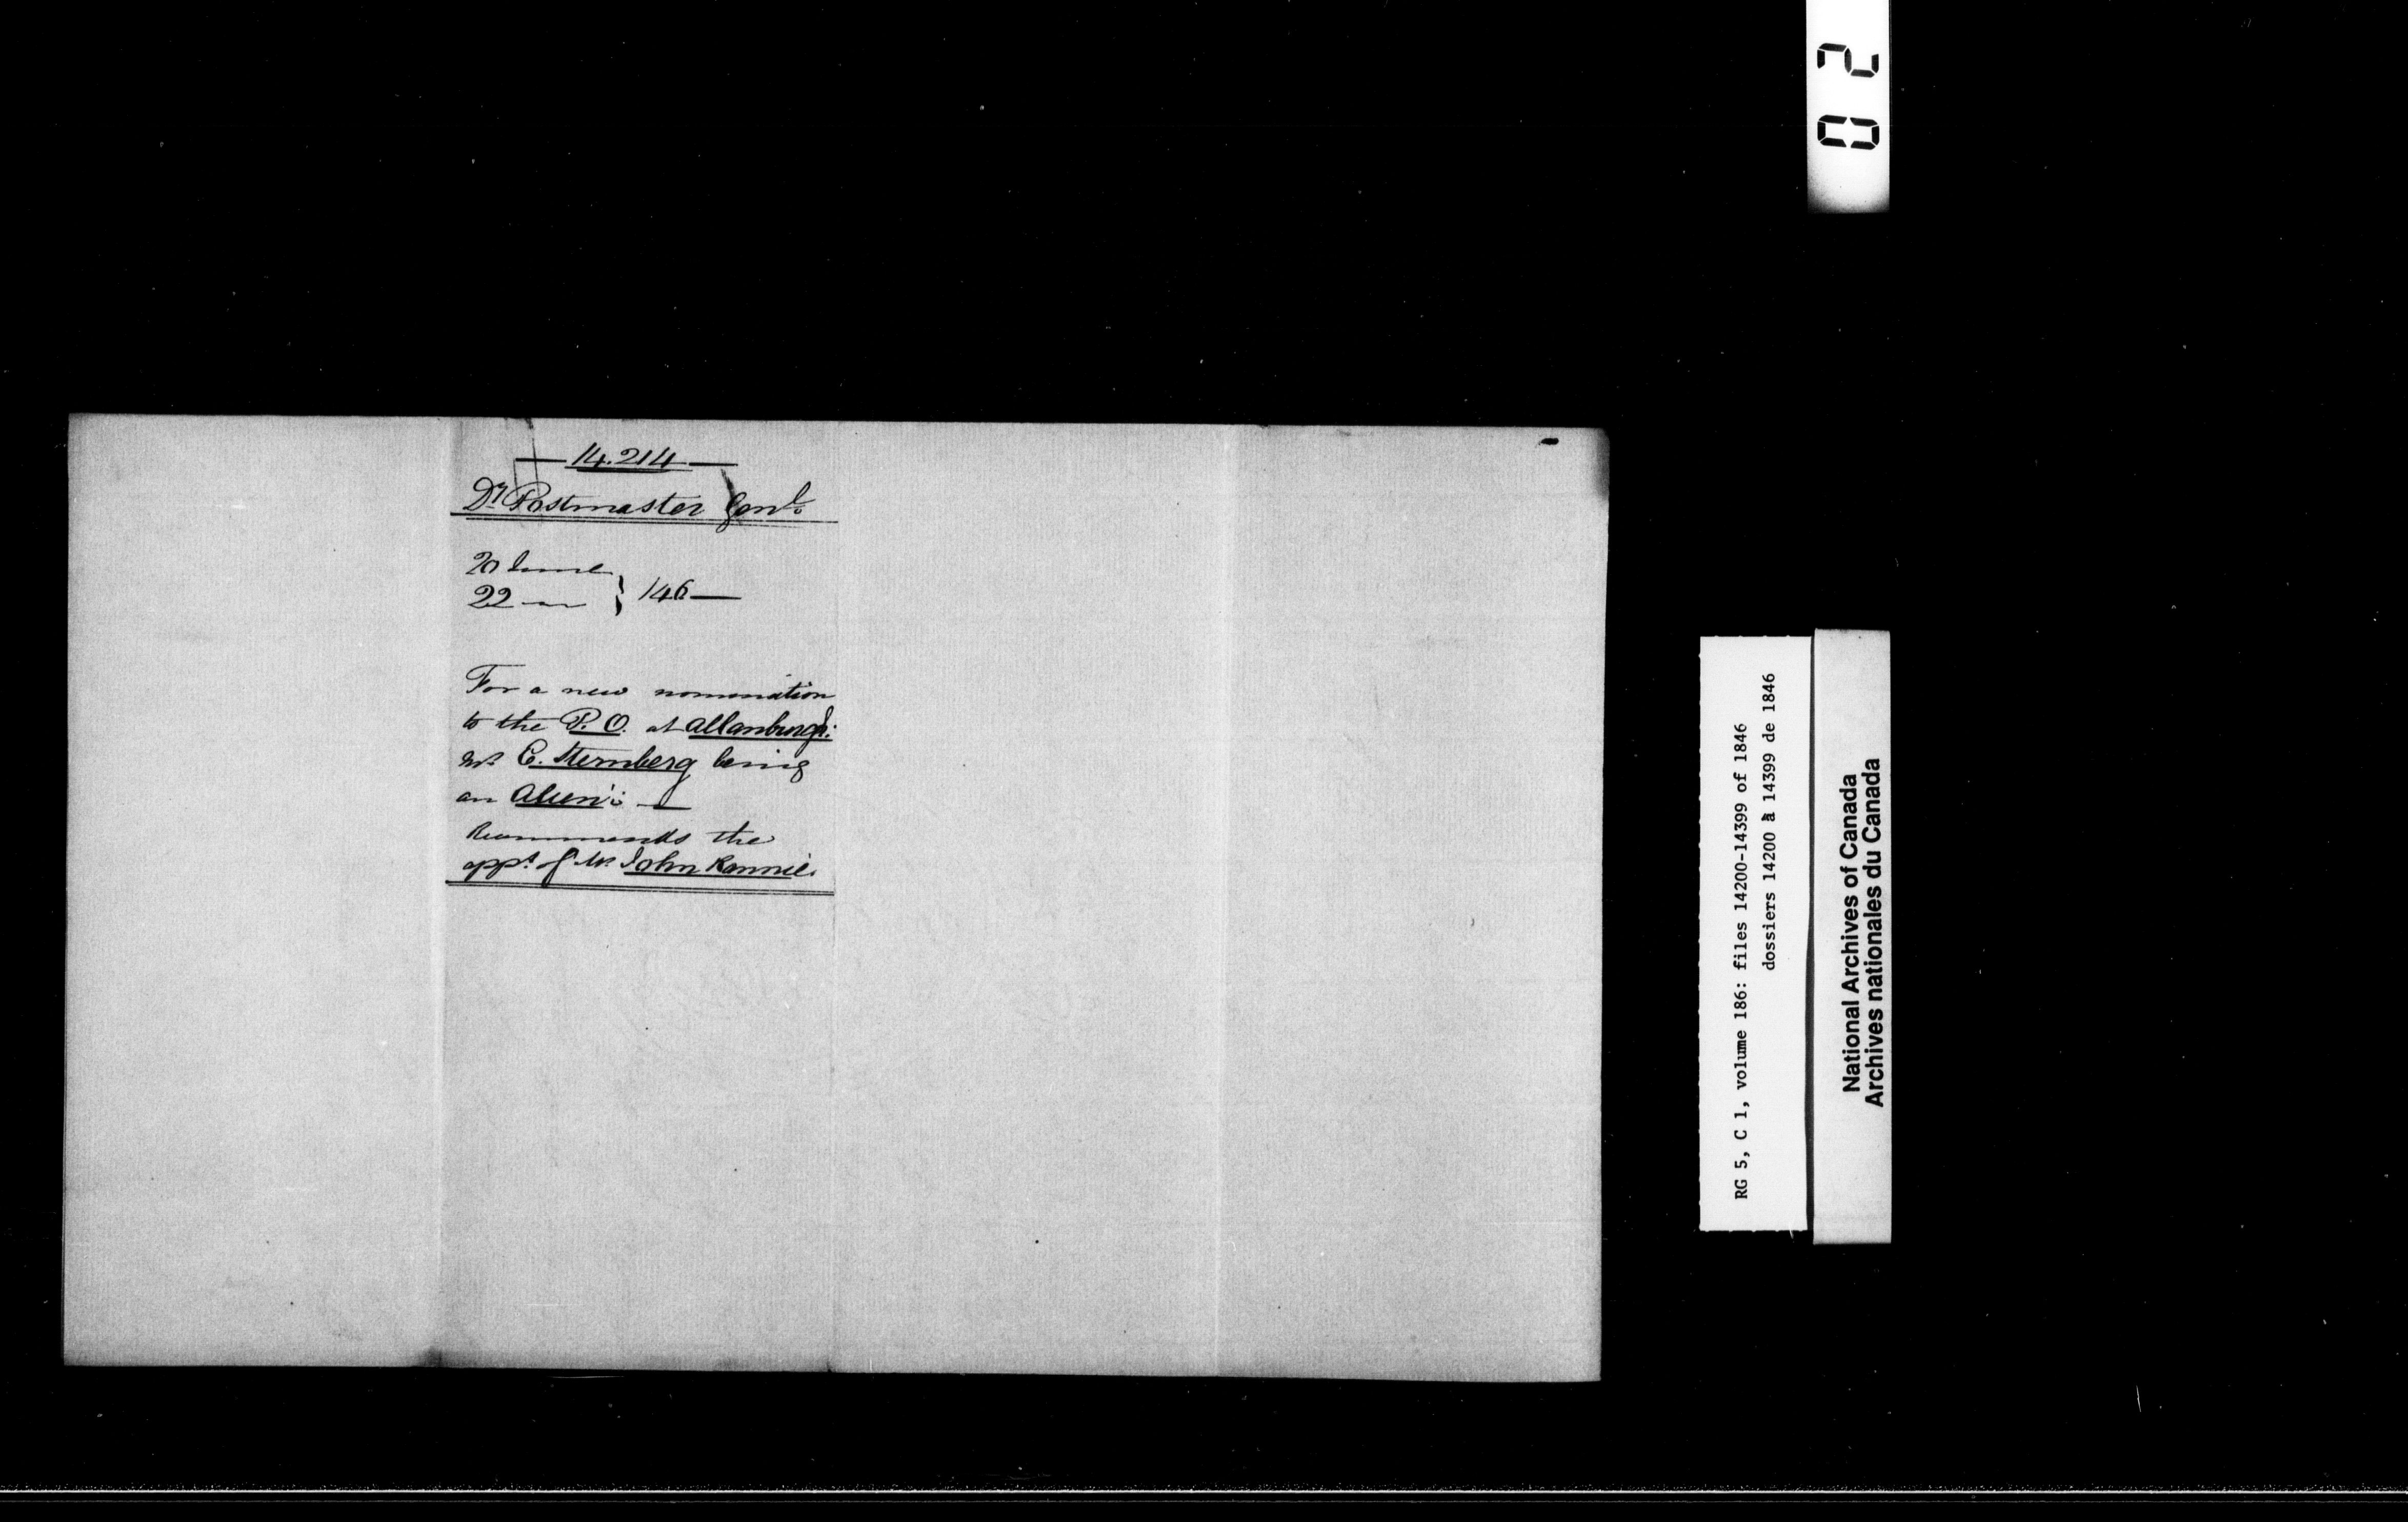 — 14.214 —
Dy Postmaster Genl.
20 June
22 — } 146 —
For a new nomination
to the P. O. at Allanburgh:
Mr C. Sternberg being
an Alien: —
Recommends the
appt. of Mr John Rannie.
02
RG 5, C 1, volume 186: files 14200-14399 of 1846
dossiers 14200 à 14399 de 1846
National Archives of Canada
Archives nationales du Canada